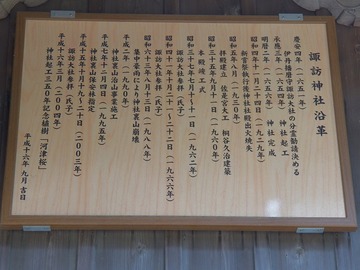 諏訪神社沿革
慶安四年(一六五一)
伊丹播磨守諏訪大社の分霊勧請決める
承應三年(一六五四) 神社起工
明暦二年(一六五六) 神社完成
昭和四年十一月二十四日(一九二九)
新嘗祭執行後神社社殿出火焼失
昭和五年八月(一九三〇)
本殿建立 佐是宮大工 桐谷久治建築
昭和三十五年九月十一日(一九六〇)
本殿竣工式
昭和四十一年七月十六日(一九六六)
諏訪大社参拝(氏子)
昭和四十七年十月二十一~二十二日
諏訪大社参拝(氏子)
昭和六十三年八月十三日(一九八八)
集中豪雨により神社裏山崩壊
平成元年(一九八九)
神社裏山治山事業施工
平成七年十二月四日(一九九五)
神社裏山保安林指定
平成十五年十月十九~二十日(二〇〇三)
諏訪大社参拝(氏子)
平成十六年三月(二〇〇四)
神社起工三五〇年記念植樹「河津桜」
平成十六年九月吉日